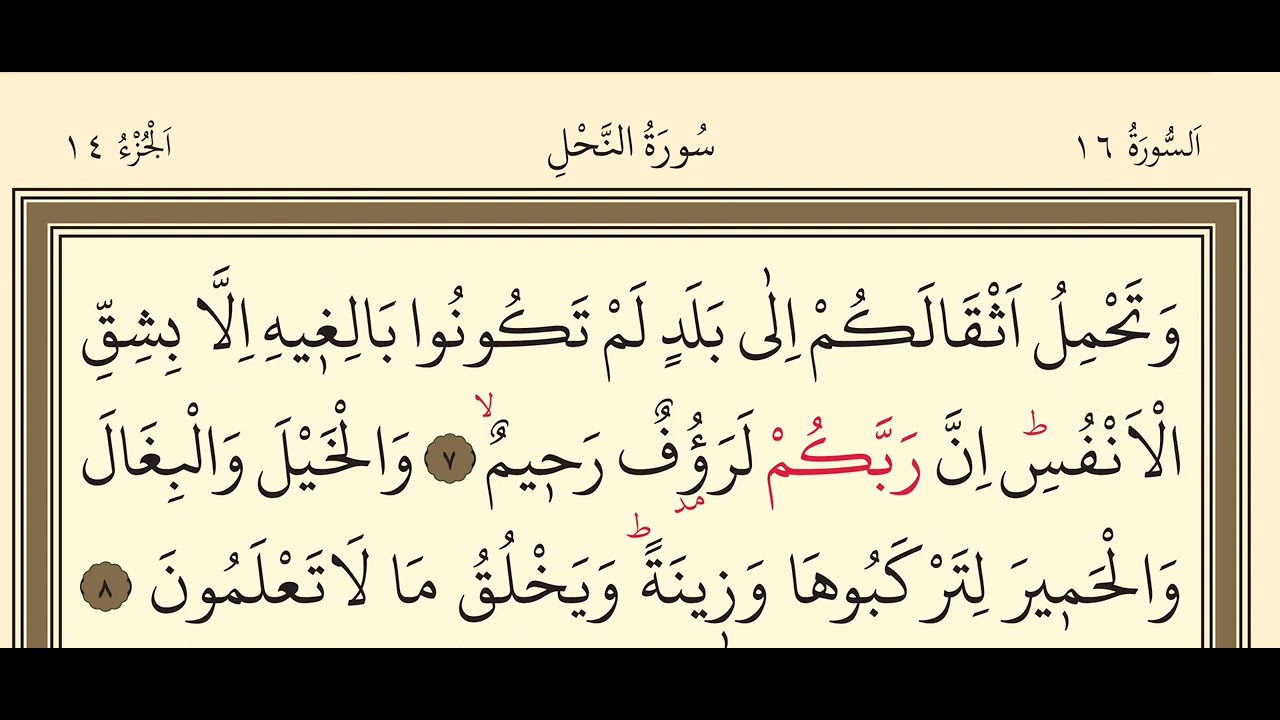 اَلسُّورَةُ ١٦ سُورَةُ النَّحْلِ اَلْجُزْءُ ١٤
وَتَحْمِلُ اَثْقَالَكُمْ اِلٰى بَلَدٍ لَمْ تَكُونُوا بَالِغ۪يهِ اِلَّا بِشِقِّ
الْاَنْفُسِۜ اِنَّ رَبَّكُمْ لَرَؤُ۫فٌ رَح۪يمٌۙ ٧ وَالْخَيْلَ وَالْبِغَالَ
وَالْحَم۪يرَ لِتَرْكَبُوهَا وَز۪ينَةًۜ وَيَخْلُقُ مَا لَا تَعْلَمُونَ ٨